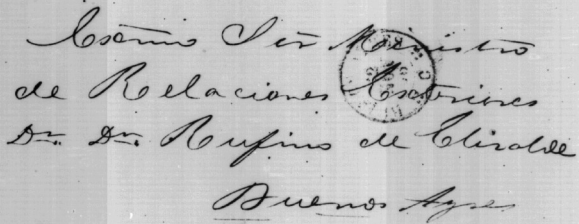 Exmio Sñr Ministro
de Relaciones Exteriores
Dr. Dn. Rufino de Elizalde
Buenos Ayres